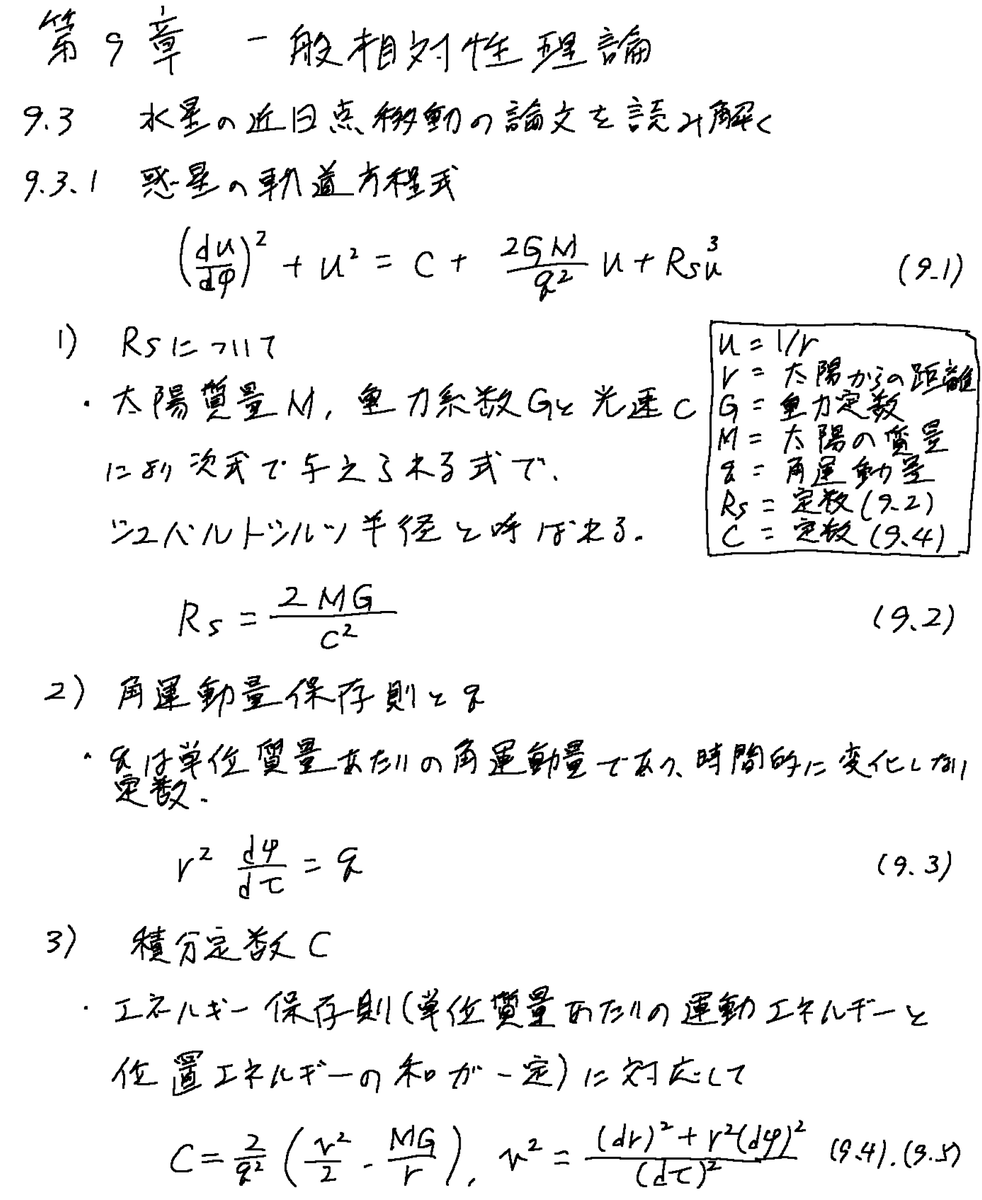 第9章 一般相対性理論
9.3 水星の近日点移動の論文を読み解く
9.3.1 惑星の軌道方程式
(du/dφ)² + u² = C + 2GM/q² u + Rsu³ (9.1)
1) Rsについて
・太陽質量M, 重力系数Gと光速C
により次式で与えられる式で、
シュバルトシルツ半径と呼ばれる.
u = 1/r
r = 太陽からの距離
G = 重力定数
M = 太陽の質量
q = 角運動量
Rs = 定数(9.2)
C = 定数(9.4)
Rs = 2MG/c² (9.2)
2) 角運動量保存則とq
・qは単位質量あたりの角運動量であり、時間的に変化しない
定数.
r² dφ/dτ = q (9.3)
3) 積分定数C
・エネルギー保存則(単位質量あたりの運動エネルギーと
位置エネルギーの和が一定)に対応して
C = 2/q² (v²/2 - MG/r), v² = (dr)² + r²(dφ)²/(dτ)² (9.4).(9.5)